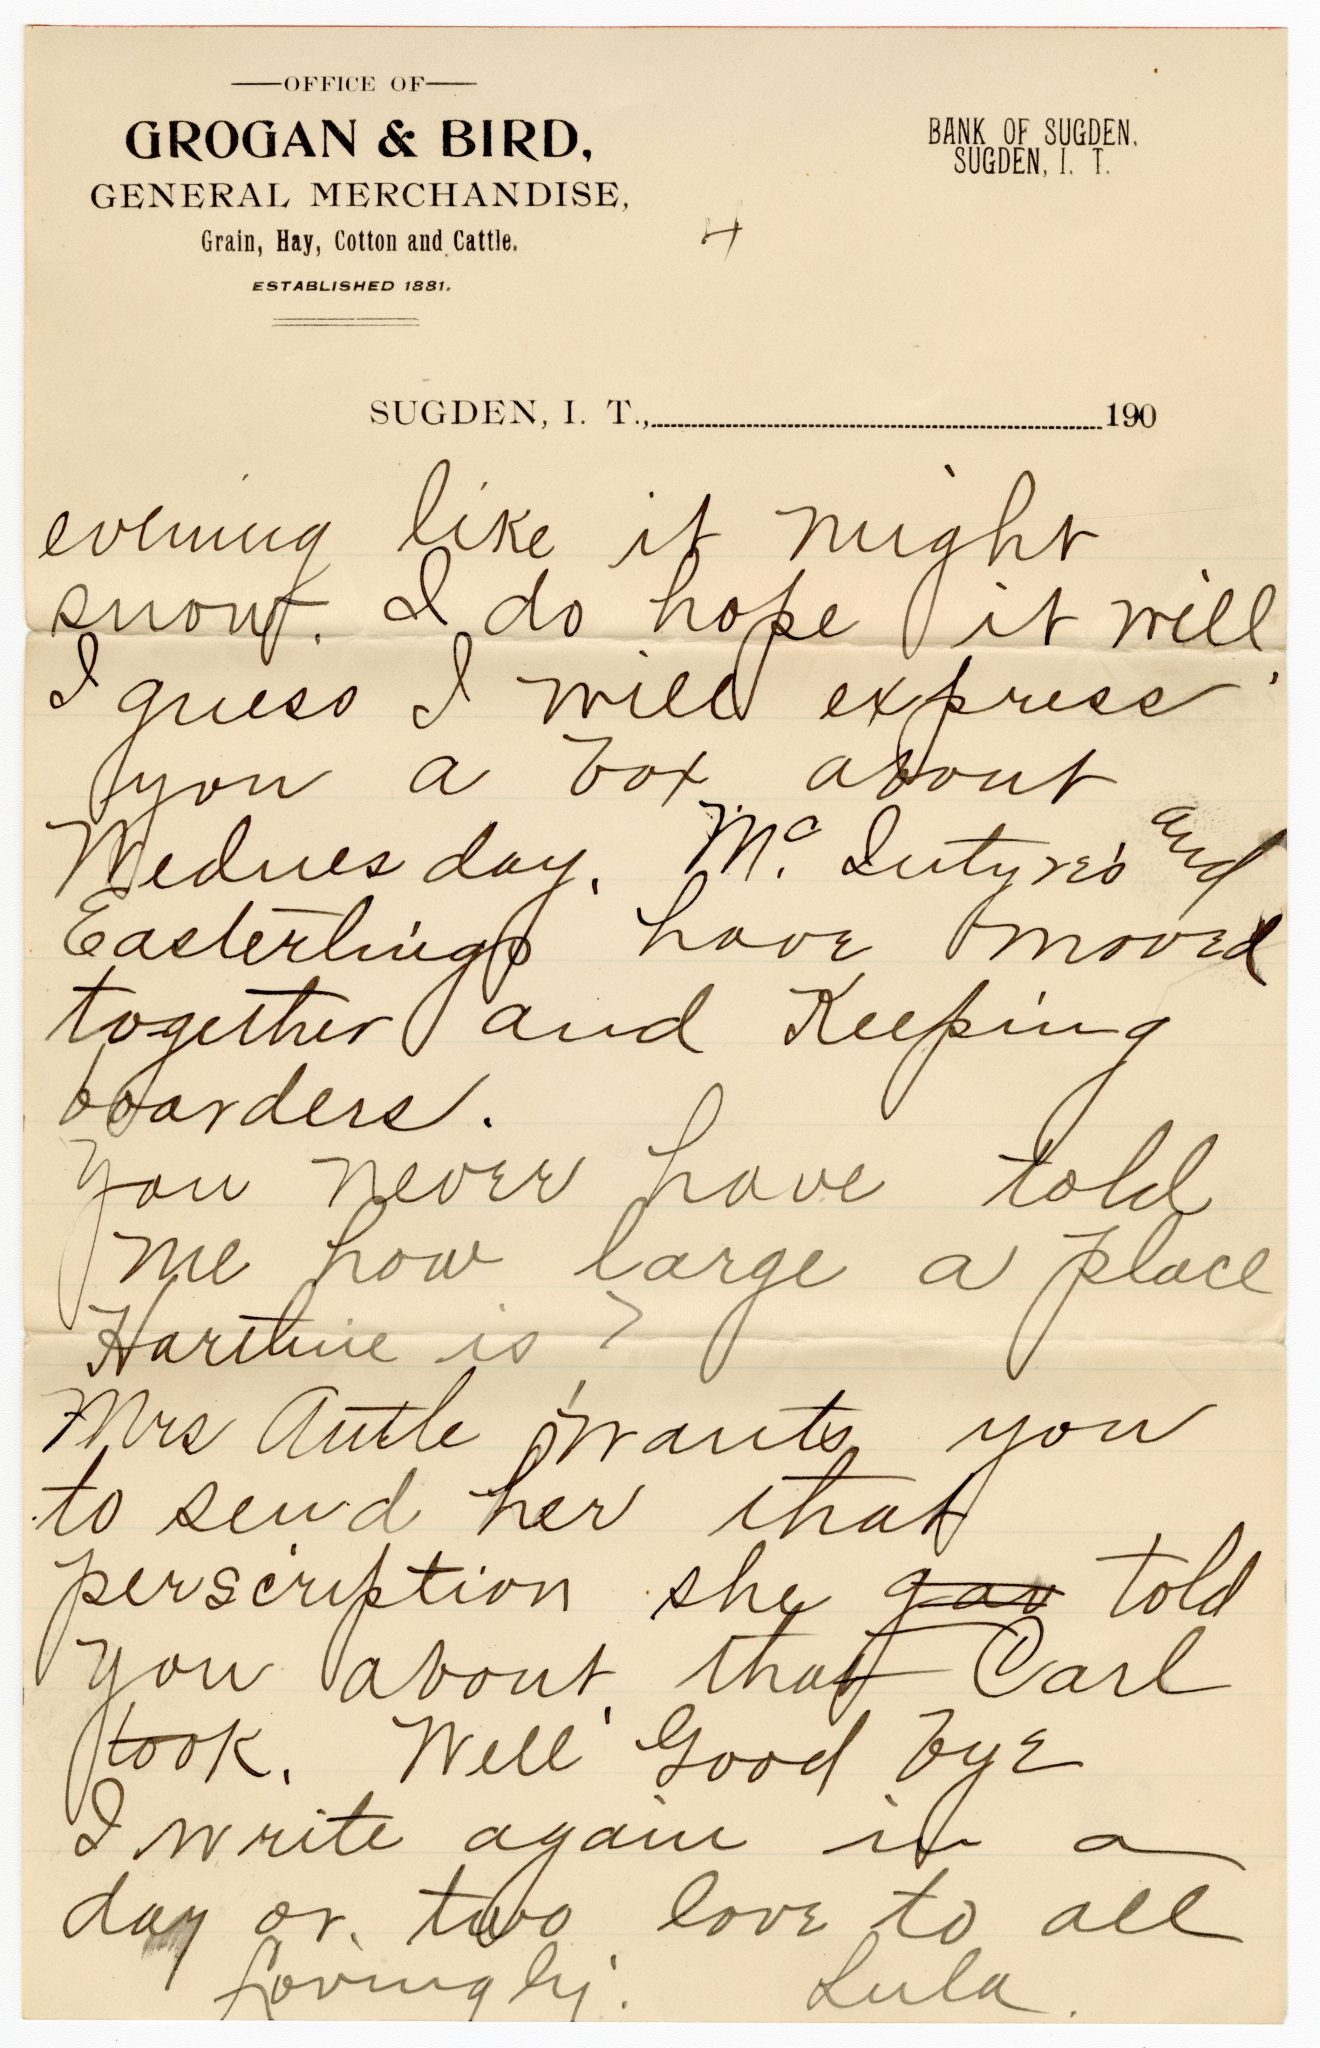 OFFICE OF
GROGAN & BIRD,
GENERAL MERCHANDISE,
Grain, Hay, Cotton and Cattle.
ESTABLISHED 1881.
BANK OF SUGDEN,
SUGDEN, I. T.
4
SUGDEN, I. T., 190
evening like it might
snow. I do hope it will.
I guess I will express
you a box about
Wednesday. Mc. Intyre's and
Easterlings have moved
together and Keeping
boarders.
You never have told
me how large a place
Hartline is?
Mrs Autle wants you
to send her that
perscription she gav told
you about, that Carl
took. Well Good bye
I write again in a
day or. two love to all
Lovingly. Lula.